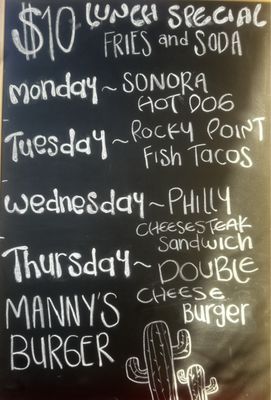 $10 LUNCH SPECIAL
FRIES and SODA
Monday ~ SONORA
HOT DOG
Tuesday ~ ROCKY POINT
Fish Tacos
Wednesday ~ PHILLY
CHEESESTEAK
Sandwich
Thursday ~ DOUBLE
CHEESE
Burger
MANNY'S
BURGER